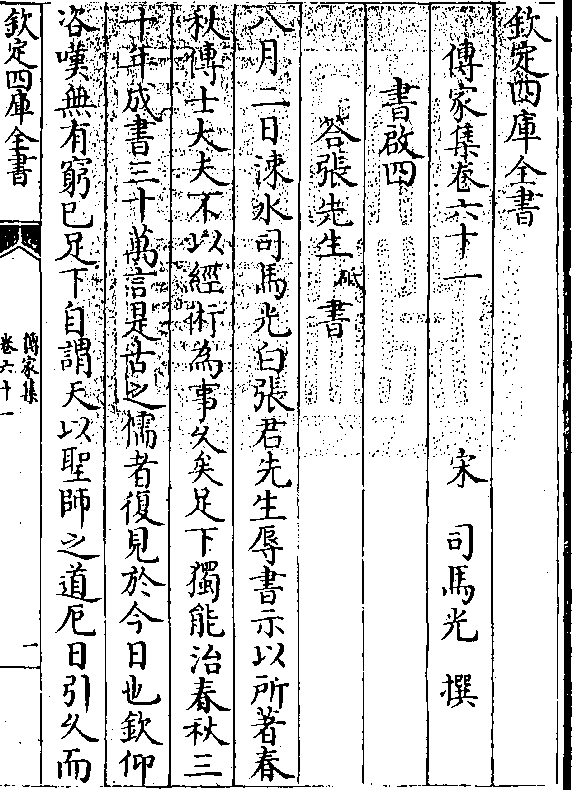 欽定四庫全書
傳家集卷六十一
宋 司馬光 撰
書啟四
答張先生砥書
八月二日涑水司馬光白張君先生辱書示以所著春
秋傳士大夫不以經術為事久矣足下獨能治春秋三
十年成書三十萬言是古之儒者復見於今日也欽仰
咨嘆無有窮已足下自謂天以聖師之道厄日引久而
欽定四庫全書
傳家集
卷六十一
一